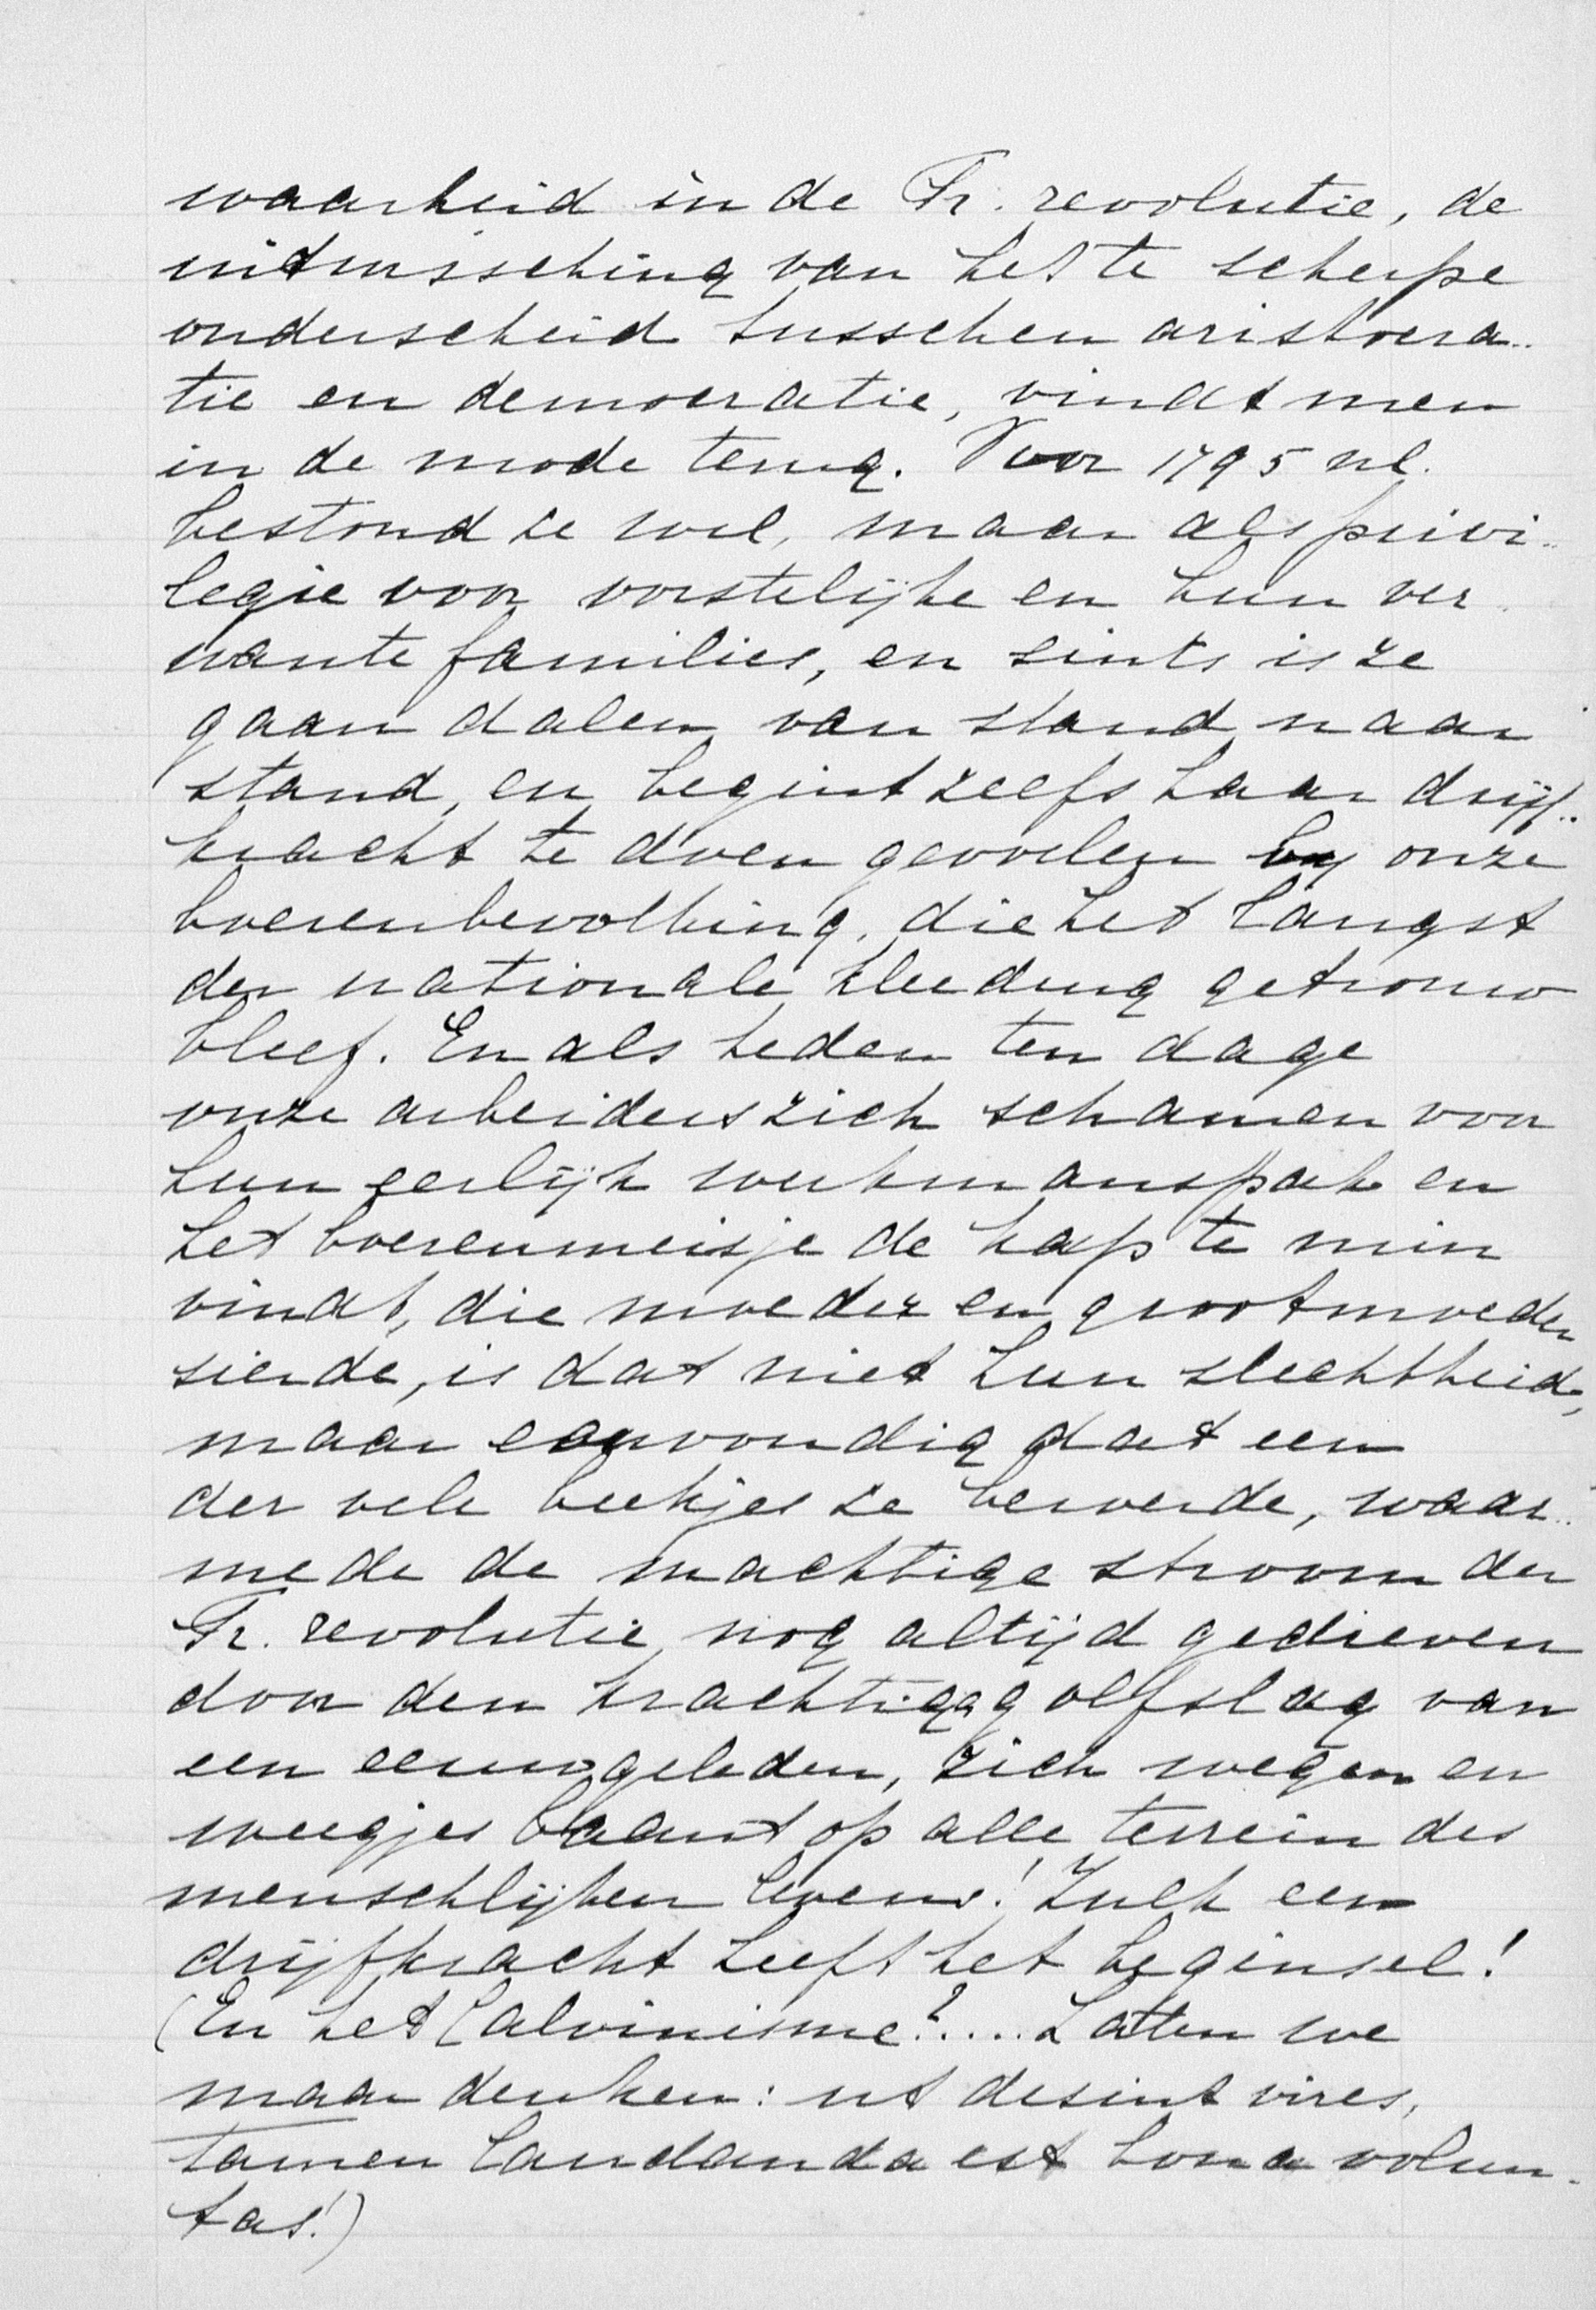 waarheid in de Fr. revolutie, de
uitwissching van het te scherpe
onderscheid tusschen aristocra-
tie en democratie, vindt men
in de mode terug. Voor 1795 nl.
bestond ze wel, maar als privi-
legie voor vorstelijke en hun ver-
wante families, en sints is ze
gaan dalen van stand naar
stand, en begint zelfs haar drijf-
kracht te doen gevoelen by onze
boerenbevolking, die het langst
der nationale kleeding getrouw
bleef. En als heden ten dage
onze arbeiders zich schamen voor
hun eerlijk werkmanspak en
het boerenmeisje de kap te min
vindt, die moeder en grootmoeder
sierde, is dat niet hun slechtheid,
maar eenvoudig dat een
der vele beekjes ze beroerde, waar-
mede de machtige stroom der
Fr. revolutie, nog altijd gedreven
door den krachtigen golfslag van
een eeuw geleden, zich wegen en
weegjes baant op alle terrein des
menschlijken levens! Zulk een
drijfkracht heeft het beginsel!
(En het Calvinisme?.... Laten we
maar denken: ut desint vires,
tamen laudanda est bona volun-
tas!)